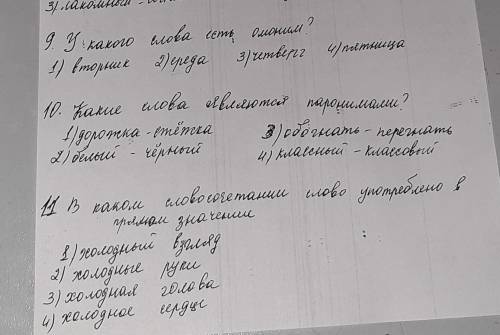 3) лакомный -
9. У какого слова есть омоним?
1) вторник 2) среда 3) четверг 4) пятница
10. Какие слова являются паронимами?
1) дорожка - стёжка 3) обогнать - перегнать
2) белый - чёрный 4) классный - классовый
11 В каком словосочетании слово употреблено в
прямом значении
1) холодный взгляд
2) холодные руки
3) холодная голова
4) холодное сердце